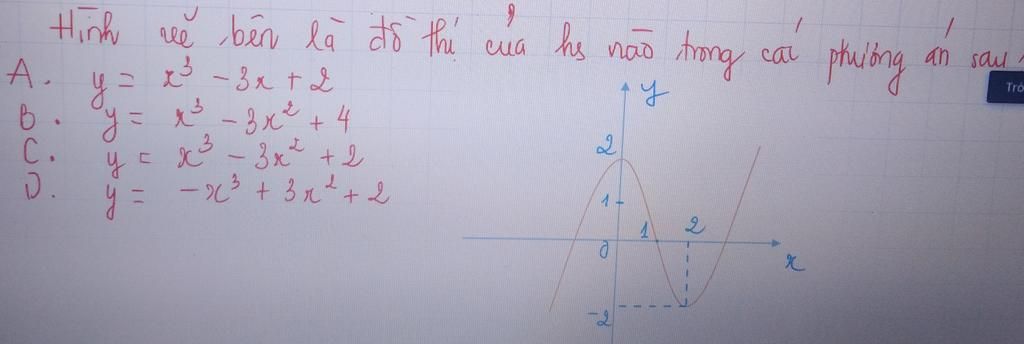 Hình vẽ bên là đồ thị của hs nào trong các phương án sau
A. y = x³ - 3x + 2
B. y = x³ - 3x² + 4
C. y = x³ - 3x² + 2
D. y = -x³ + 3x² + 2
y
2
1
1
2
0
x
-2